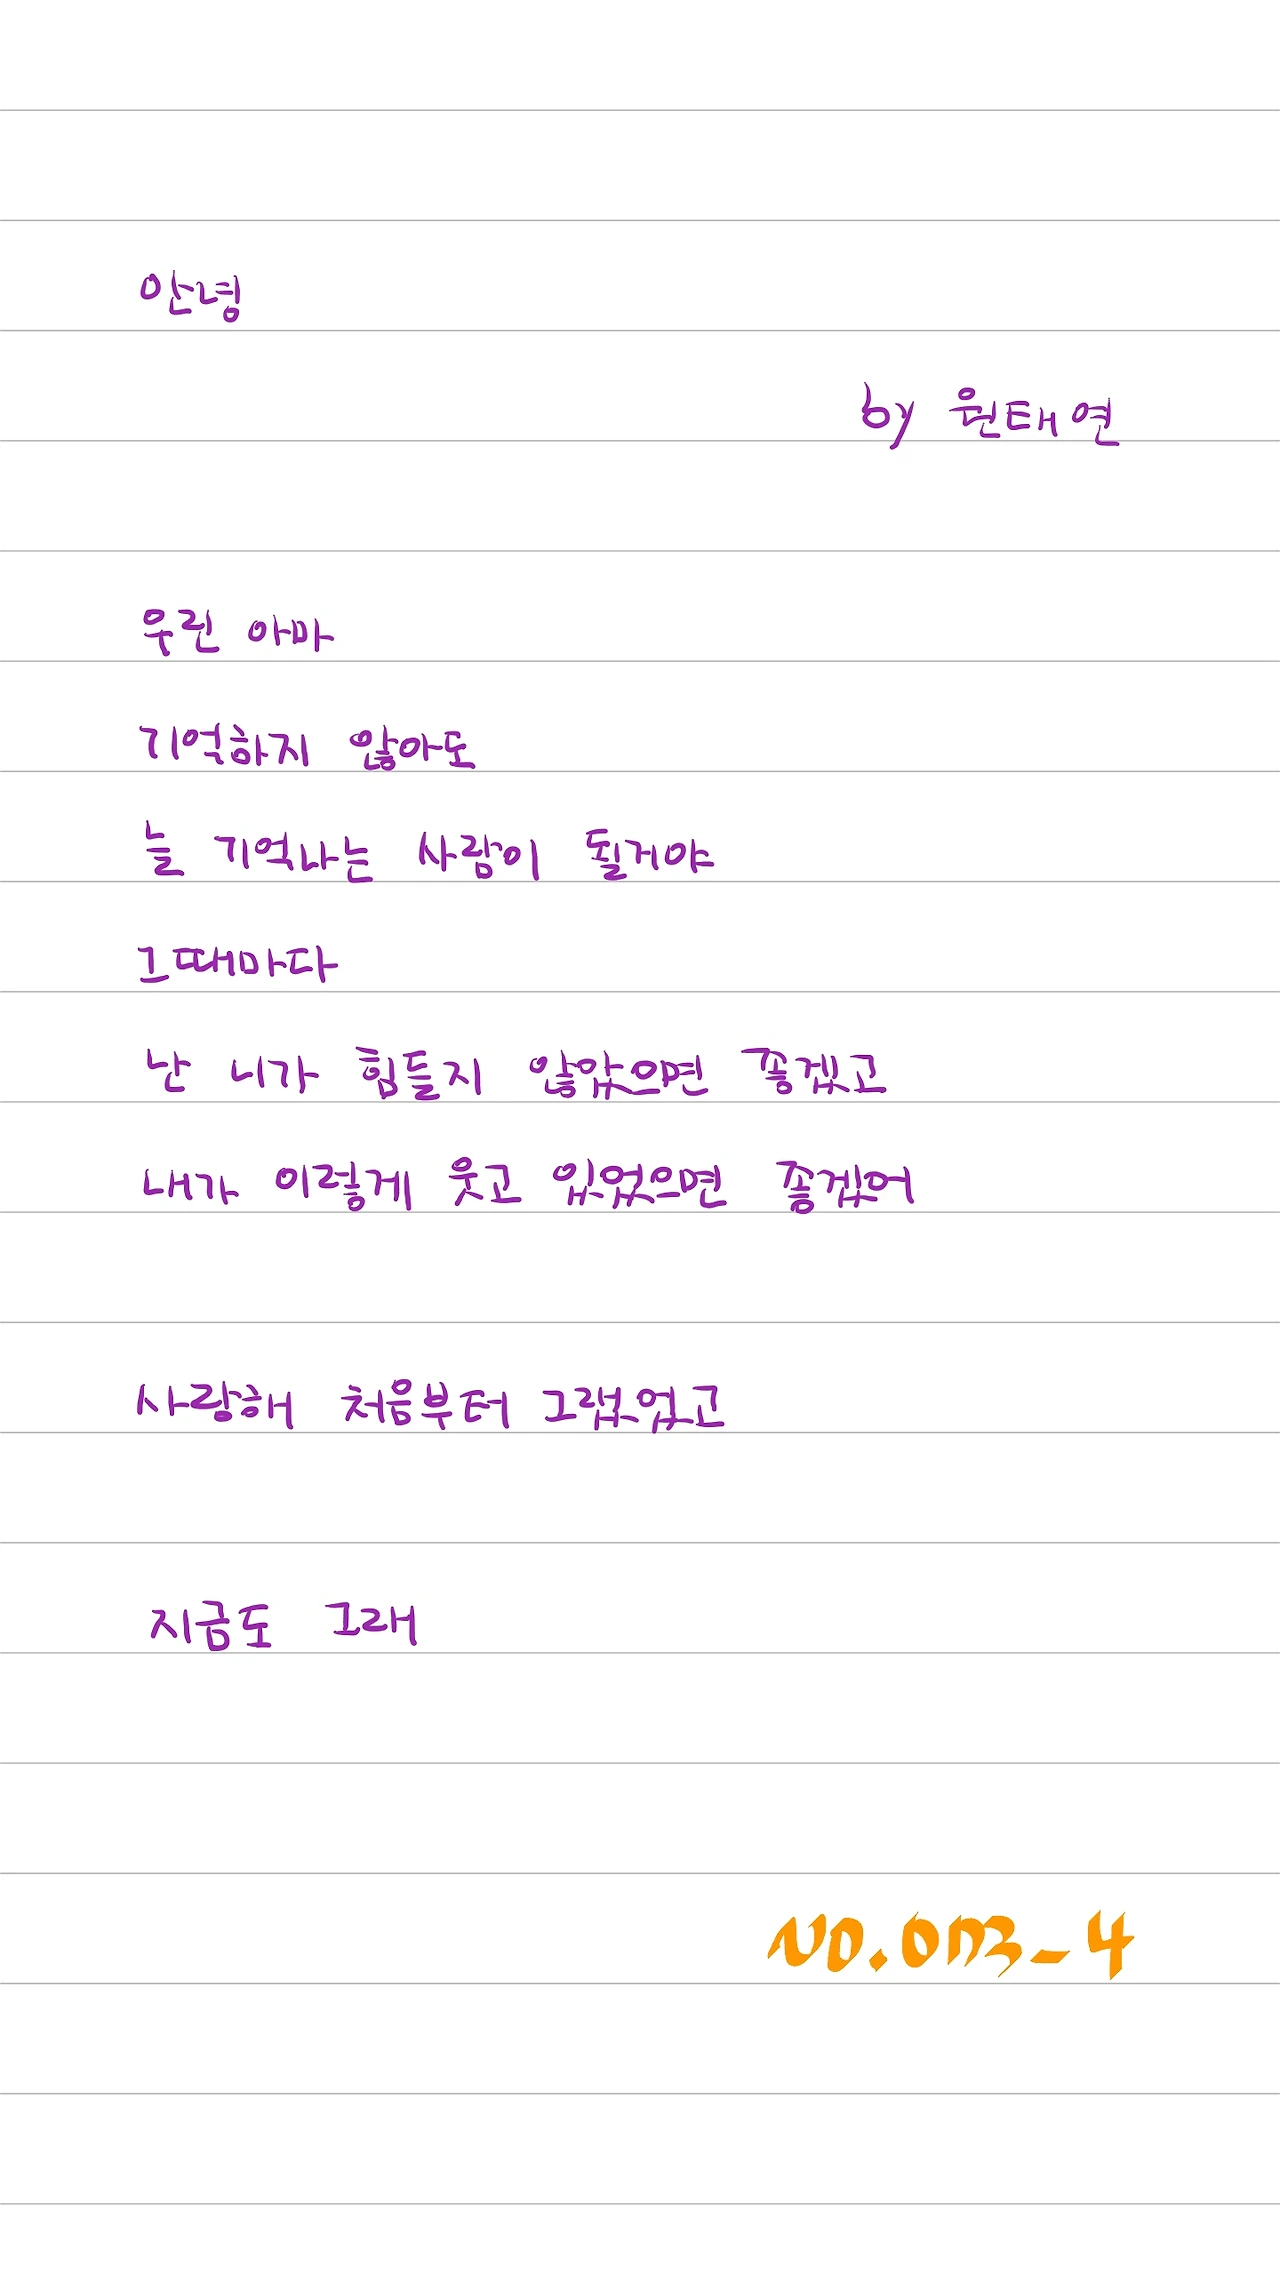 안녕
by 원태연
우린 아마
기억하지 않아도
늘 기억나는 사람이 될거야
그때마다
난 니가 힘들지 않았으면 좋겠고
내가 이렇게 웃고 있었으면 좋겠어
사랑해 처음부터 그랬었고
지금도 그래